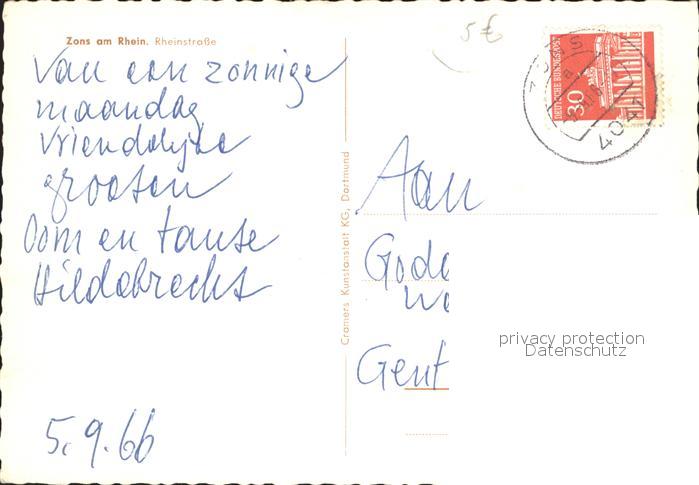 Zons am Rhein. Rheinstraße
5 €
Van een zonnige
maandag
vriendelijke
groeten
Oom en tante
Hildebrecht
5.9.66
Cramers Kunstanstalt KG, Dortmund
DEUTSCHE BUNDESPOST
30
ZONS
4041
Aan
Gode
We
Gent
privacy protection
Datenschutz